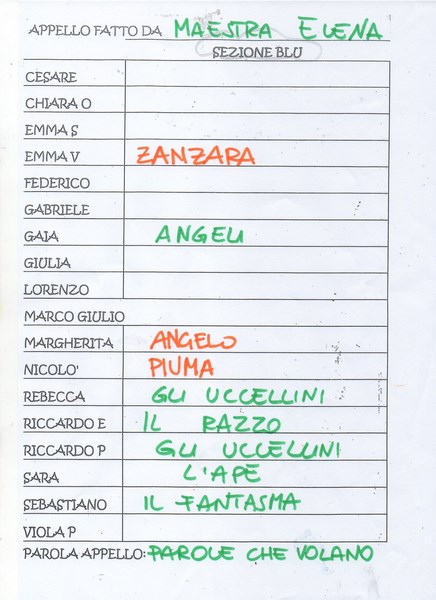 APPELLO FATTO DA MAESTRA ELENA
SEZIONE BLU
CESARE
CHIARA O
EMMA S
EMMA V ZANZARA
FEDERICO
GABRIELE
GAIA ANGELI
GIULIA
LORENZO
MARCO GIULIO
MARGHERITA ANGELO
NICOLO' PIUMA
REBECCA GLI UCCELLINI
RICCARDO E IL RAZZO
RICCARDO P GLI UCCELLINI
SARA L'APE
SEBASTIANO IL FANTASMA
VIOLA P
PAROLA APPELLO: PAROLE CHE VOLANO